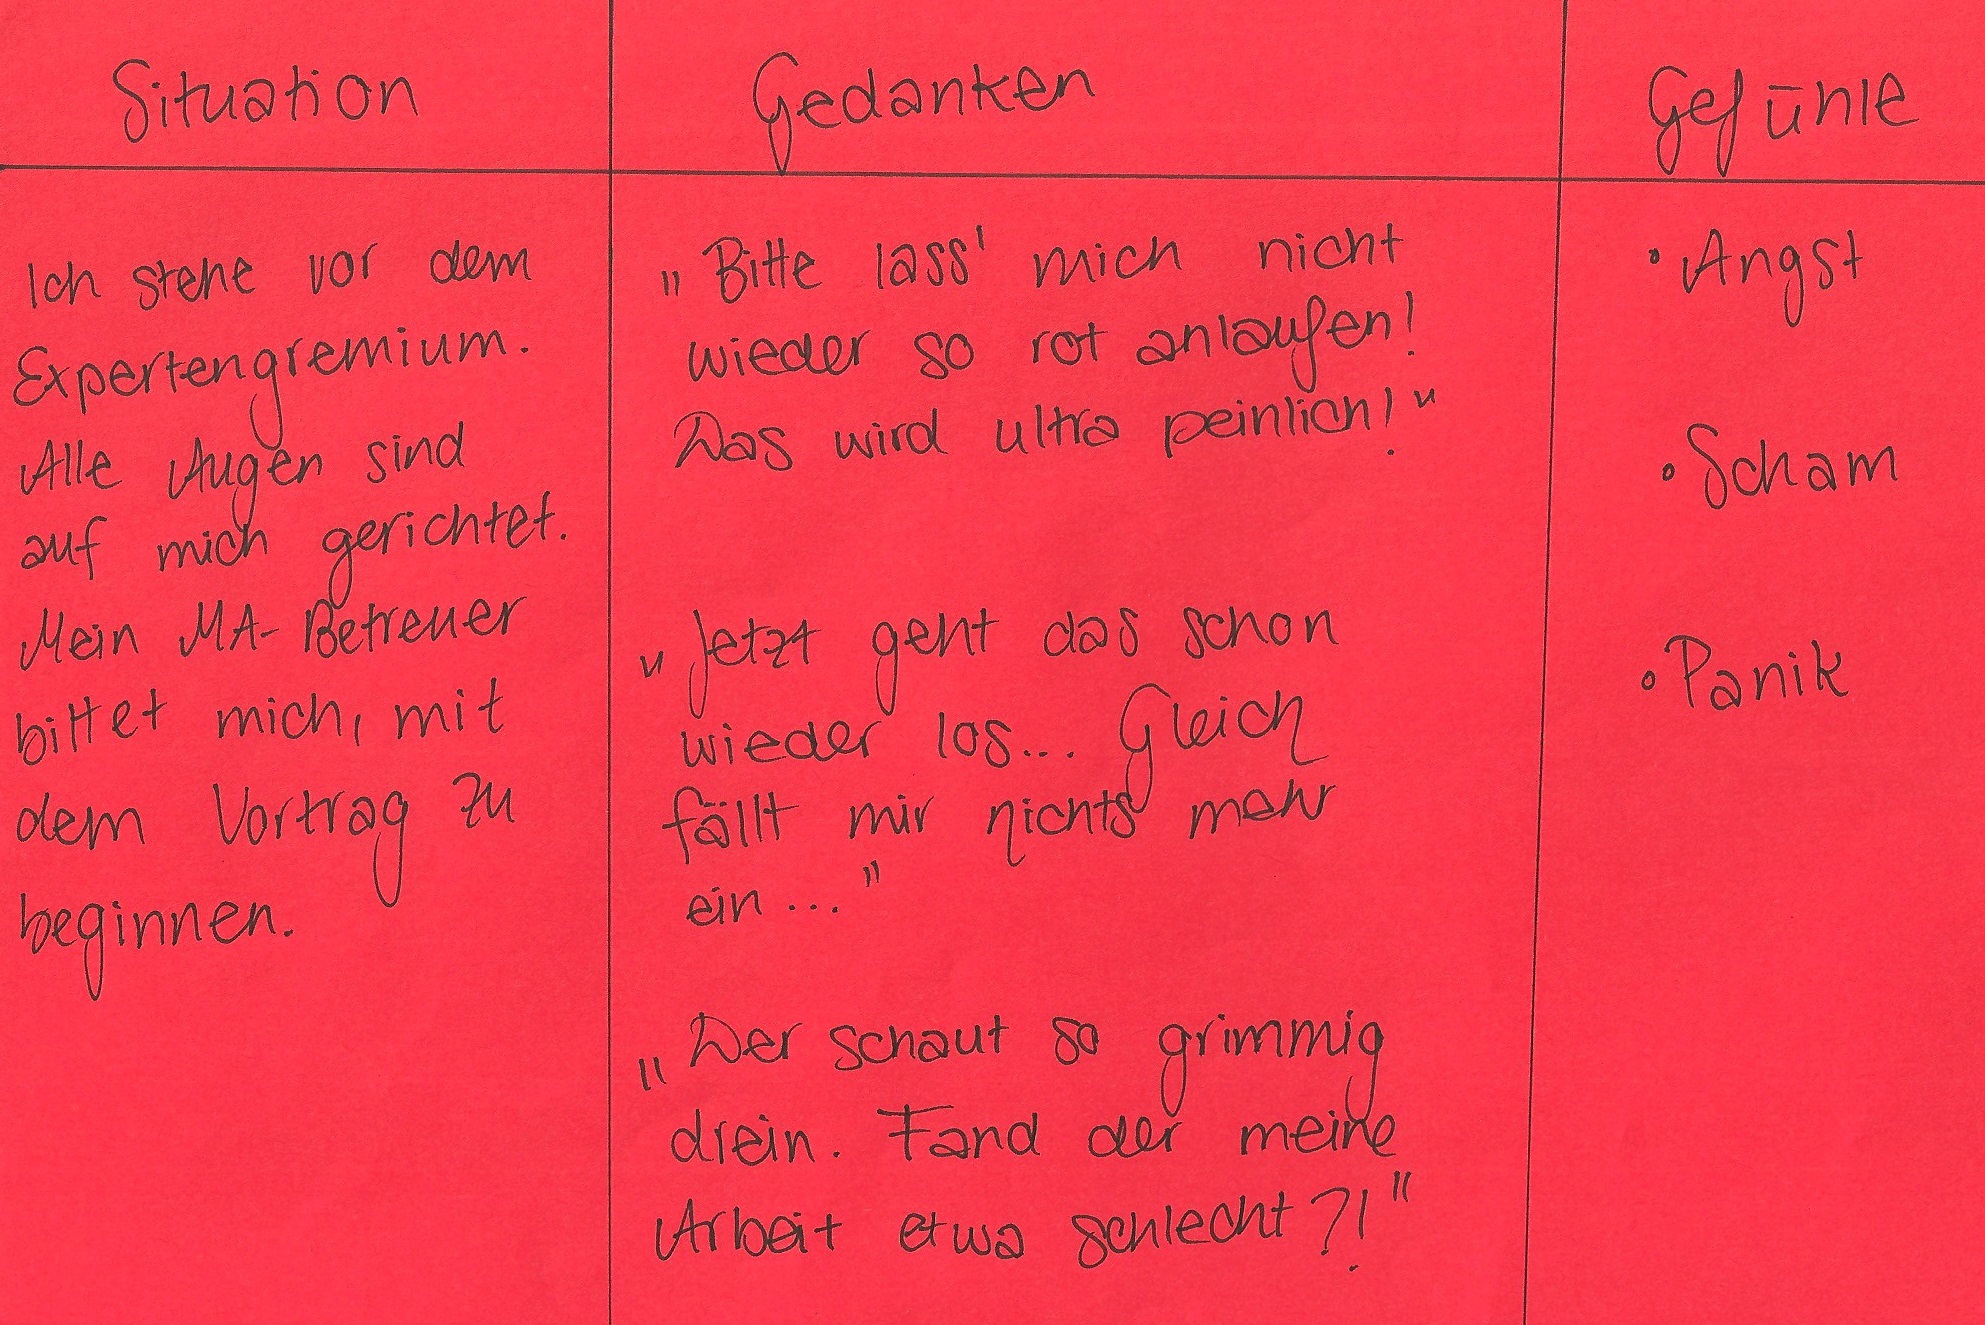 Situation
Gedanken
Gefühle
Ich stehe vor dem
Expertengremium.
Alle Augen sind
auf mich gerichtet.
Mein MA-Betreuer
bittet mich, mit
dem Vortrag zu
beginnen.
„Bitte lass' mich nicht
wieder so rot anlaufen!
Das wird ultra peinlich!"
„Jetzt geht das schon
wieder los... Gleich
fällt mir nichts mehr
ein..."
„Der schaut so grimmig
drein. Fand der meine
Arbeit etwa schlecht?!"
• Angst
• Scham
• Panik